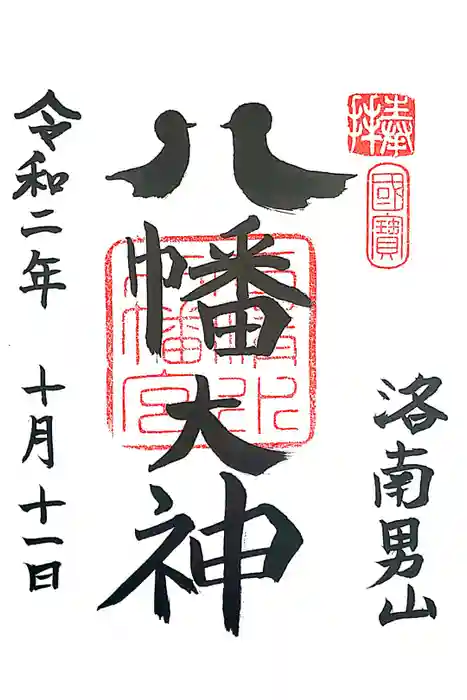 奉拝
國寶
洛南男山
八幡大神
石清水八幡宮
令和二年 十月十一日